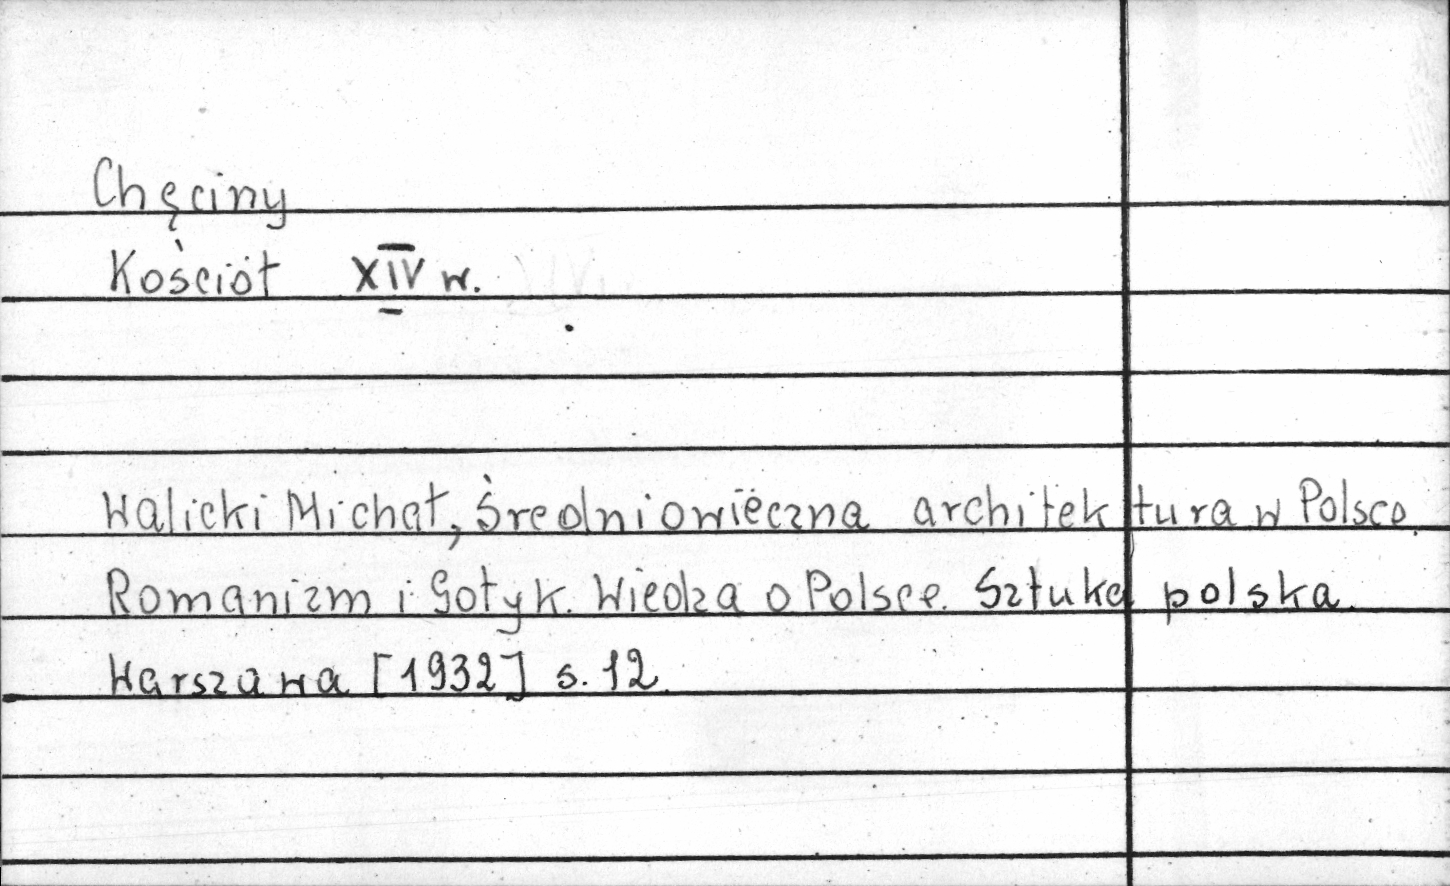 Chęciny
Kościół XIV w.
Walicki Michał, Średniowieczna architektura w Polsce.
Romanizm i Gotyk. Wiedza o Polsce. Sztuka polska.
Warszawa [1932] s. 12.